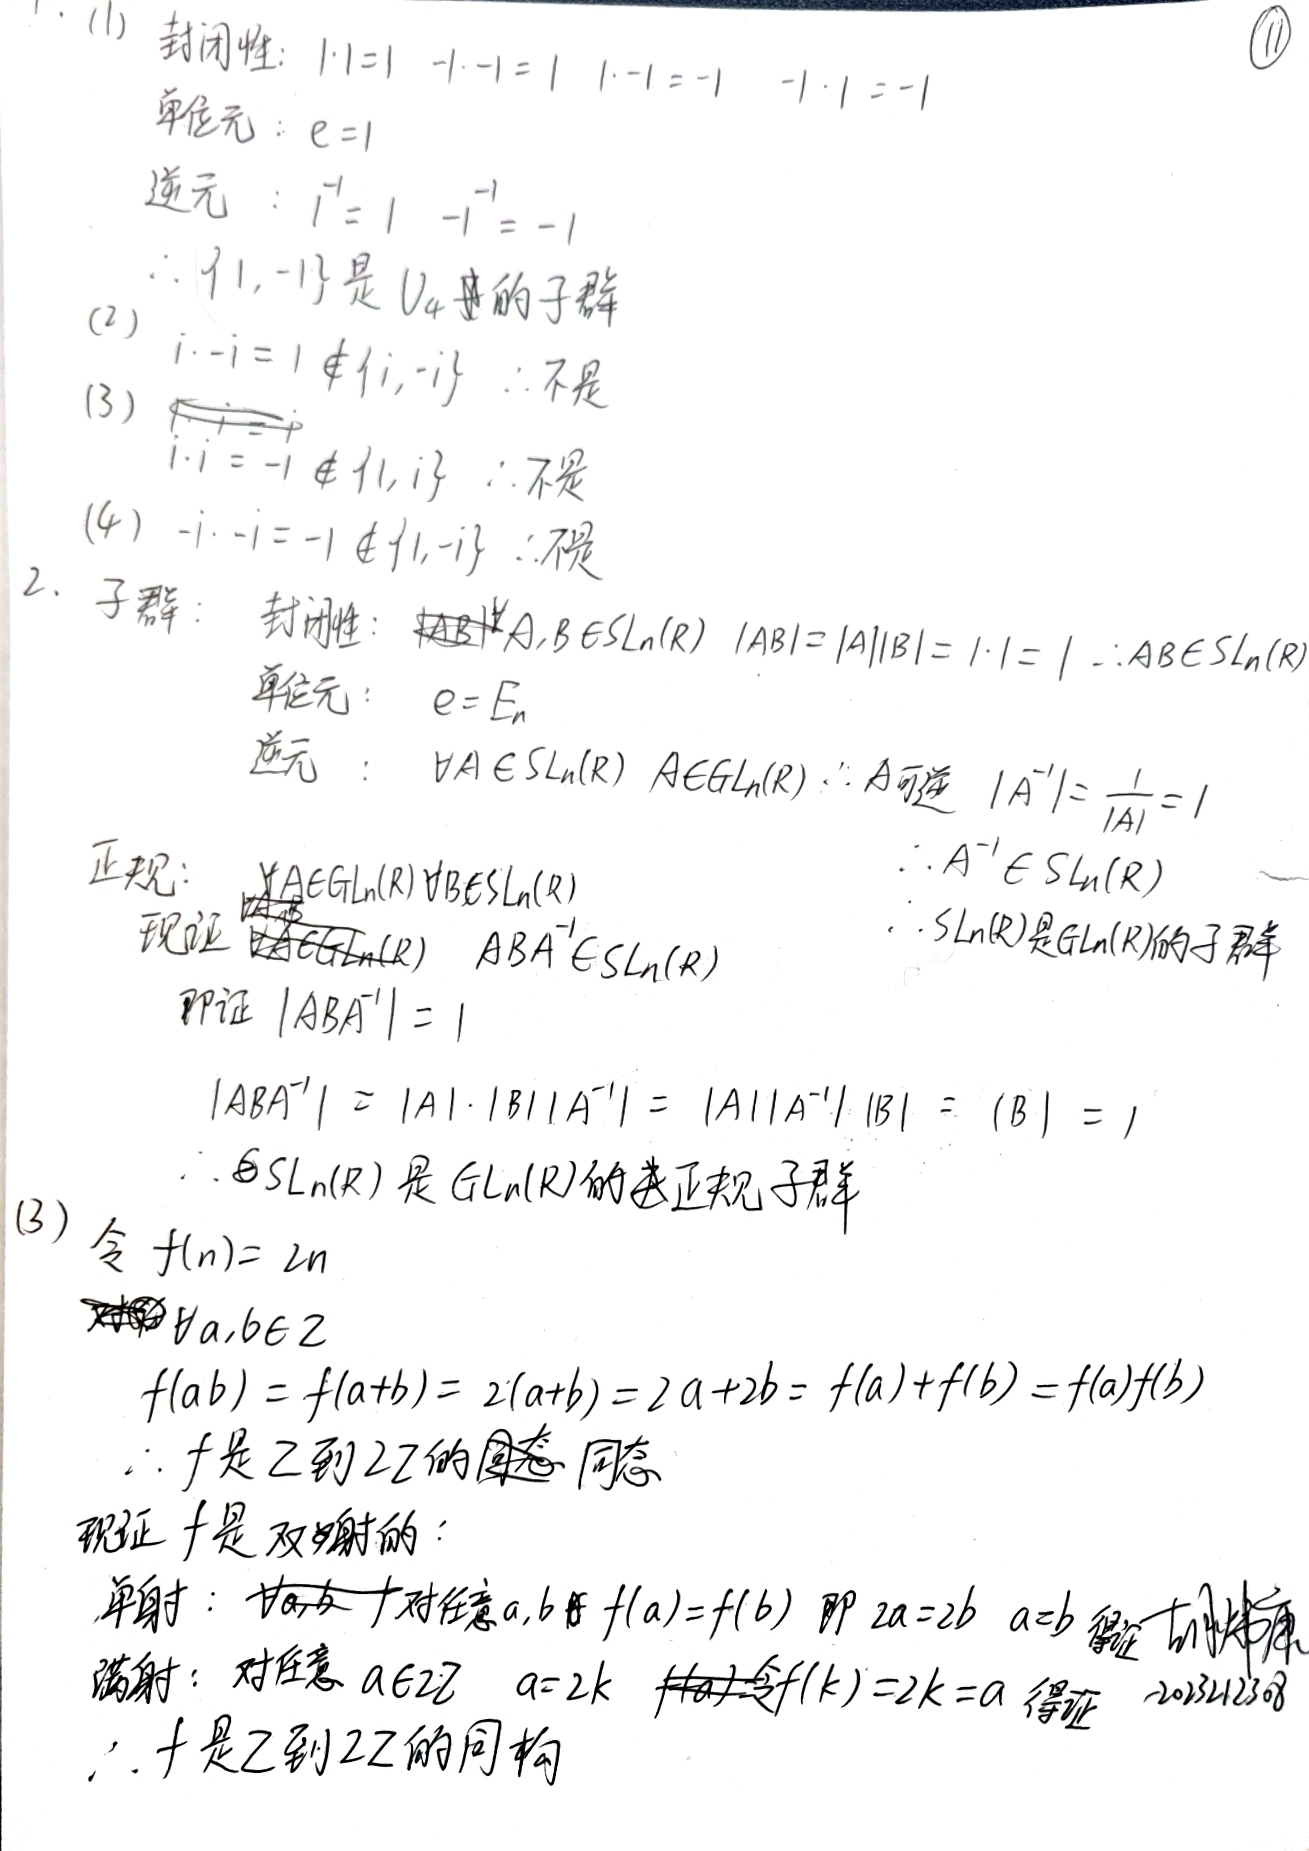 ⑪
1. (1) 封闭性: 1·1=1 -1·-1=1 1·-1=-1 -1·1=-1
单位元: e=1
逆元: 1^{-1}=1 -1^{-1}=-1
∴{1,-1}是U₄的子群
(2) i·-i=1∉{i,-i} ∴不是
(3)
i·i=-1∉{1,i} ∴不是
(4) -i·-i=-1∉{1,-i} ∴不是
2. 子群: 封闭性: ∀A,B∈SLn(R) |AB|=|A||B|=1·1=1 ∴AB∈SLn(R)
单位元: e=En
逆元: ∀A∈SLn(R) A∈GLn(R) ∴A可逆 |A^{-1}|=1/|A|=1
∴A^{-1}∈SLn(R)
∴SLn(R)是GLn(R)的子群
正规: ∀A∈GLn(R) ∀B∈SLn(R)
现证 ABA^{-1}∈SLn(R)
即证 |ABA^{-1}|=1
|ABA^{-1}|=|A|·|B||A^{-1}|=|A||A^{-1}||B|=|B|=1
∴SLn(R)是GLn(R)的正规子群
(3) 令f(n)=2n
∀a,b∈Z
f(ab)=f(a+b)=2(a+b)=2a+2b=f(a)+f(b)=f(a)f(b)
∴f是Z到2Z的同态
现证f是双射的:
单射: 对任意a,b f(a)=f(b) 即2a=2b a=b 得证
满射: 对任意a∈2Z a=2k f(k)=2k=a 得证 2023212308
∴f是Z到2Z的同构